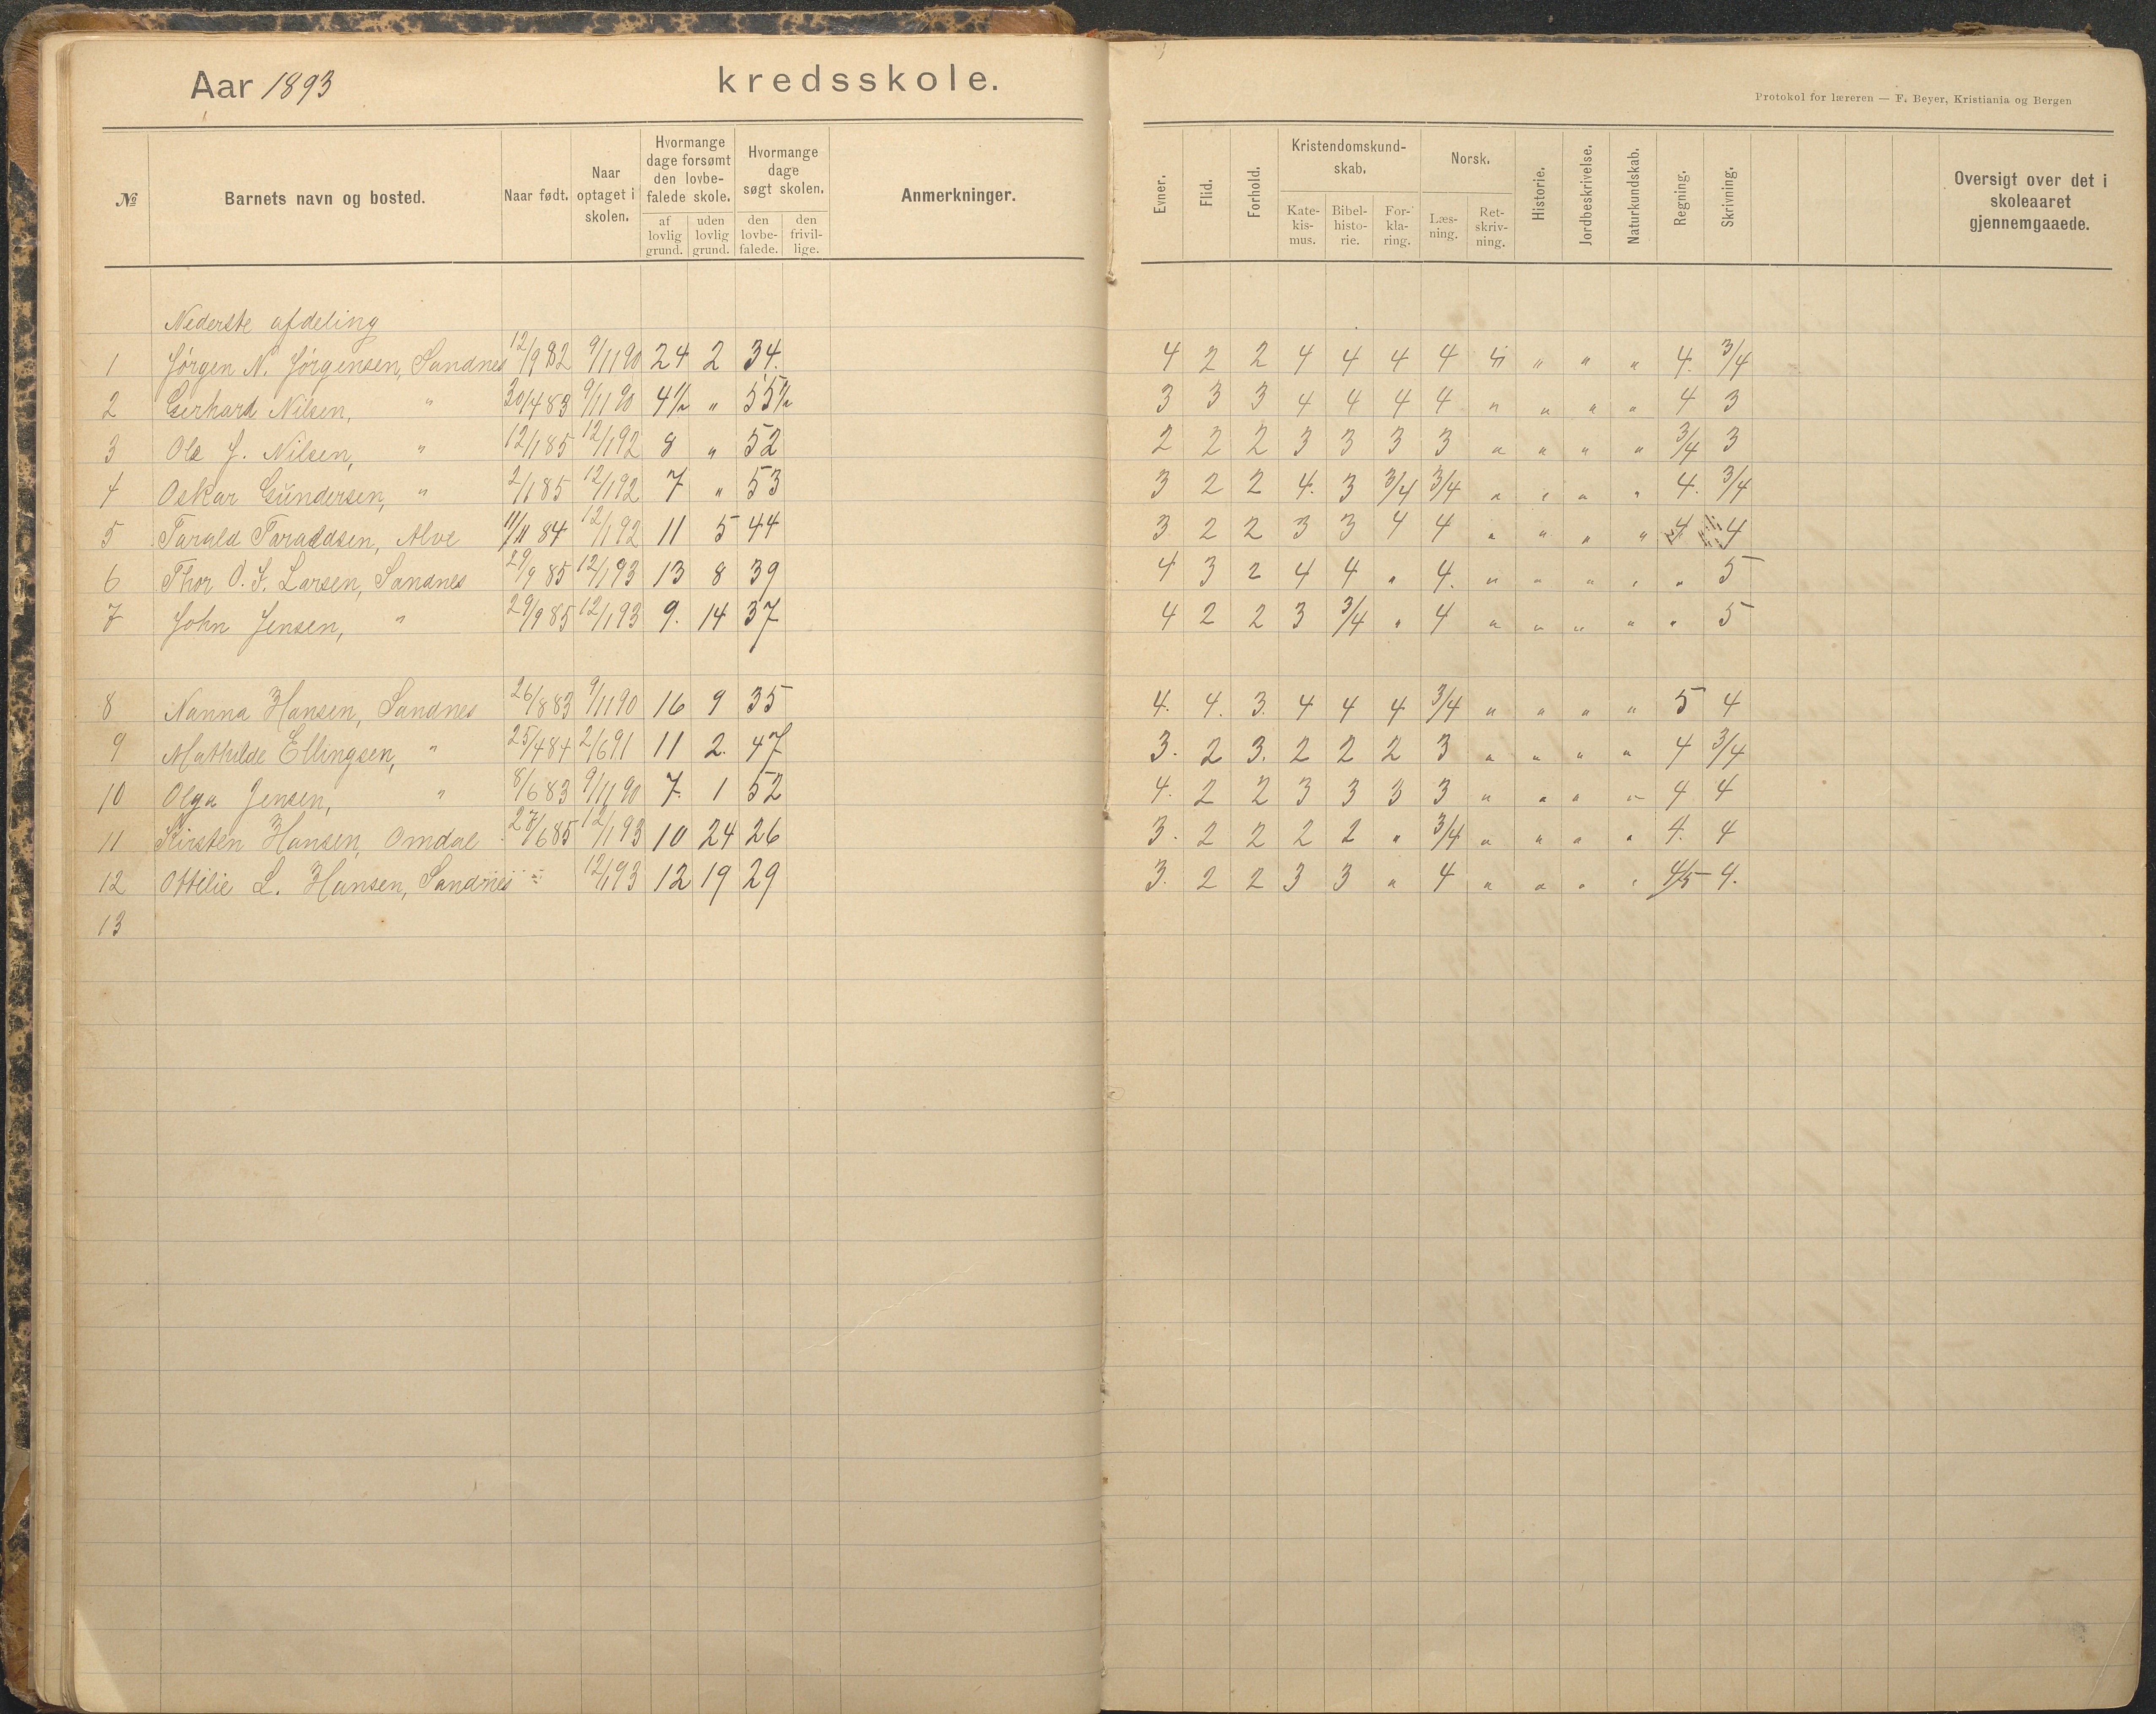 Aar 1893 kredsskole.
Protokol for læreren — F. Beyer, Kristiania og Bergen
№ Barnets navn og bosted. Naar født. Naar optaget i skolen. Hvormange dage forsømt den lovbefalede skole. af lovlig grund. uden lovlig grund. Hvormange dage søgt skolen. den lovbefalede. den frivillige. Anmerkninger. Evner. Flid. Forhold. Kristendomskundskab. Katekismus. Bibelhistorie. Forklaring. Norsk. Læsning. Retskrivning. Historie. Jordbeskrivelse. Naturkundskab. Regning. Skrivning. Oversigt over det i skoleaaret gjennemgaaede.
Nederste afdeling
1 Jørgen N. Jørgensen, Sandnes 12/9 82 9/11 90 24 2 34. 4 2 2 4 4 4 4 " " " " 4. 3/4
2 Gerhard Nilsen, " 30/4 83 9/11 90 4½ " 55½ 3 3 3 4 4 4 4 " " " " 4 3
3 Ole J. Nilsen, " 12/1 85 12/1 92 8 " 52 2 2 2 3 3 3 3 " " " " 3/4 3
4 Oskar Gundersen, " 2/1 85 12/1 92 7 " 53 3 2 2 4. 3 3/4 3/4 " " " " 4. 3/4
5 Tarald Taraldsen, Alve 11/11 84 12/1 92 11 5 44 3 2 2 3 3 4 4 " " " " 4 4
6 Thor O. F. Larsen, Sandnes 29/9 85 12/1 93 13 8 39 4 3 2 4 4 " 4. " " " " " 5
7 John Jensen, " 29/9 85 12/1 93 9. 14 37 4 2 2 3 3/4 " 4 " " " " " 5
8 Nanna Hansen, Sandnes 26/8 83 9/11 90 16 9 35 4. 4. 3. 4 4 4 3/4 " " " " 5 4
9 Mathilde Ellingsen, " 25/4 84 2/6 91 11 2. 47 3. 2 3. 2 2 2 3 " " " " 4 3/4
10 Olga Jensen, " 8/6 83 9/11 90 7. 1 52 4. 2 2 3 3 3 3 " " " " 4 4
11 Kirsten Hansen Omdal 27/6 85 12/1 93 10 24 26 3. 2 2 2 2 " 3/4 " " " " 4. 4
12 Ottilie L. Hansen, Sandnes 12/1 93 12 19 29 3. 2 2 3 3 " 4 " " " " 4/5 4.
13